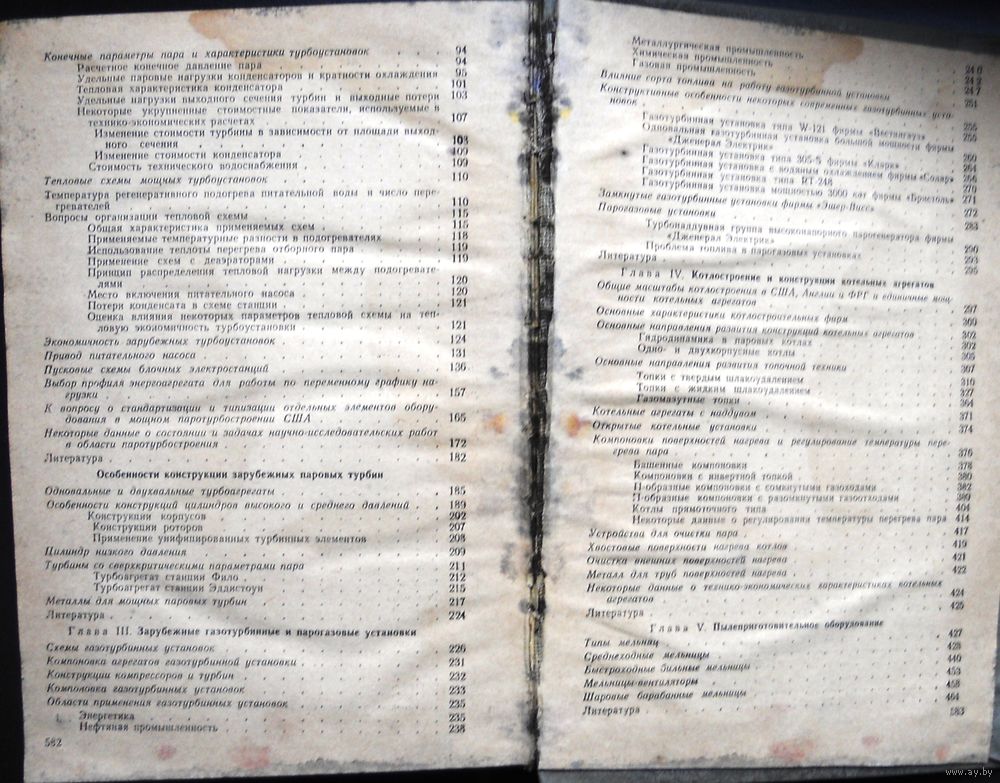 Конечные параметры пара и характеристики турбоустановок . . . 94
Расчетное конечное давление пара . . . 94
Удельные паровые нагрузки конденсаторов и кратности охлаждения 95
Тепловая характеристика конденсатора . . . 101
Удельные нагрузки выходного сечения турбин и выходные потери 103
Некоторые укрупненные стоимостные показатели, используемые в
технико-экономических расчетах . . . 107
Изменение стоимости турбины в зависимости от площади выход-
ного сечения . . . 108
Изменение стоимости конденсатора . . . 109
Стоимость технического водоснабжения . . . 109
Тепловые схемы мощных турбоустановок . . . 110
Температура регенеративного подогрева питательной воды и число пере-
гревателей . . . 110
Вопросы организации тепловой схемы . . . 115
Общая характеристика применяемых схем . . . 115
Применяемые температурные разности в подогревателях . . . 118
Использование теплоты перегрева отборного пара . . . 119
Применение схем с деаэраторами . . . 119
Принцип распределения тепловой нагрузки между подогревате-
лями . . . 120
Место включения питательного насоса . . . 120
Потери конденсата в схеме станции . . . 121
Оценка влияния некоторых параметров тепловой схемы на теп-
ловую экономичность турбоустановки . . . 121
Экономичность зарубежных турбоустановок . . . 124
Привод питательного насоса . . . 131
Пусковые схемы блочных электростанций . . . 136
Выбор профиля энергоагрегата для работы по переменному графику на-
грузки . . . 157
К вопросу о стандартизации и типизации отдельных элементов обору-
дования в мощном паротурбостроении США . . . 165
Некоторые данные о состоянии и задачах научно-исследовательских работ
в области паротурбостроения . . . 172
Литература . . . 182
Особенности конструкции зарубежных паровых турбин
Одновальные и двухвальные турбоагрегаты . . . 185
Особенности конструкций цилиндров высокого и среднего давлений . . . 189
Конструкции корпусов . . . 202
Конструкции роторов . . . 207
Применение унифицированных турбинных элементов . . . 208
Цилиндр низкого давления . . . 209
Турбины со сверхкритическими параметрами пара . . . 211
Турбоагрегат станции Фило . . . 212
Турбоагрегат станции Эддистоун . . . 215
Металлы для мощных паровых турбин . . . 217
Литература . . . 224
Глава III. Зарубежные газотурбинные и парогазовые установки
Схемы газотурбинных установок . . . 226
Компоновка агрегатов газотурбинной установки . . . 231
Конструкции компрессоров и турбин . . . 232
Компоновка газотурбинных установок . . . 233
Области применения газотурбинных установок . . . 235
Энергетика . . . 235
Нефтяная промышленность . . . 238
582
Металлургическая промышленность
Химическая промышленность . . . 240
Газовая промышленность . . . 242
Влияние сорта топлива на работу газотурбинной установки . . . 247
Конструктивные особенности некоторых современных газотурбинных уста-
новок . . . 251
Газотурбинная установка типа W-121 фирмы «Вестингауз» . . . 255
Одновальная газотурбинная установка большой мощности фирмы
«Дженерал Электрик» . . . 260
Газотурбинная установка типа 305-S фирмы «Кларк» . . . 264
Газотурбинная установка с водяным охлаждением фирмы «Солар»
Газотурбинная установка типа RT-248 . . . 270
Газотурбинная установка мощностью 3000 квт фирмы «Бристоль» . . . 271
Замкнутые газотурбинные установки фирмы «Эшер-Висс» . . . 272
Парогазовые установки . . . 283
Турбонаддувная группа высоконапорного парогенератора фирмы
«Дженерал Электрик» . . . 290
Проблема топлива в парогазовых установках . . . 293
Литература . . . 295
Глава IV. Котлостроение и конструкции котельных агрегатов
Общие масштабы котлостроения в США, Англии и ФРГ и единичные мощ-
ности котельных агрегатов . . . 297
Основные характеристики котлостроительных фирм . . . 300
Основные направления развития конструкций котельных агрегатов . . . 302
Гидродинамика в паровых котлах . . . 302
Одно- и двухкорпусные котлы . . . 305
Основные направления развития топочной техники . . . 307
Топки с твердым шлакоудалением . . . 310
Топки с жидким шлакоудалением . . . 327
Газомазутные топки . . . 364
Котельные агрегаты с наддувом . . . 371
Открытые котельные установки . . . 374
Компоновки поверхностей нагрева и регулирование температуры пере-
грева пара . . . 376
Башенные компоновки . . . 378
Компоновки с инвертной топкой . . . 380
П-образные компоновки с сомкнутыми газоходами . . . 382
П-образные компоновки с разомкнутыми газоотходами . . . 389
Котлы прямоточного типа . . . 404
Некоторые данные о регулировании температуры перегрева пара 414
Устройства для очистки пара . . . 417
Хвостовые поверхности нагрева котлов . . . 419
Очистка внешних поверхностей нагрева . . . 421
Металл для труб поверхностей нагрева . . . 422
Некоторые данные о технико-экономических характеристиках котельных
агрегатов . . . 424
Литература . . . 425
Глава V. Пылеприготовительное оборудование
Типы мельниц . . . 427
Среднеходные мельницы . . . 428
Быстроходные бильные мельницы . . . 440
Мельницы-вентиляторы . . . 453
Шаровые барабанные мельницы . . . 458
Литература . . . 464
583
www.ay.by